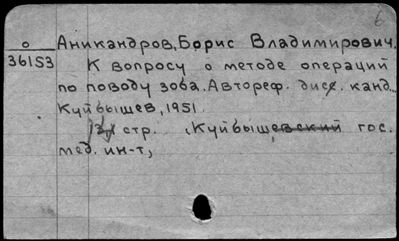 о
36153
Аникандров, Борис Владимирович.
К вопросу о методе операций
по поводу зоба. Автореф. дисс. канд..
Куйбышев, 1951.
стр. (Куйбышевский гос.
мед. ин-т,